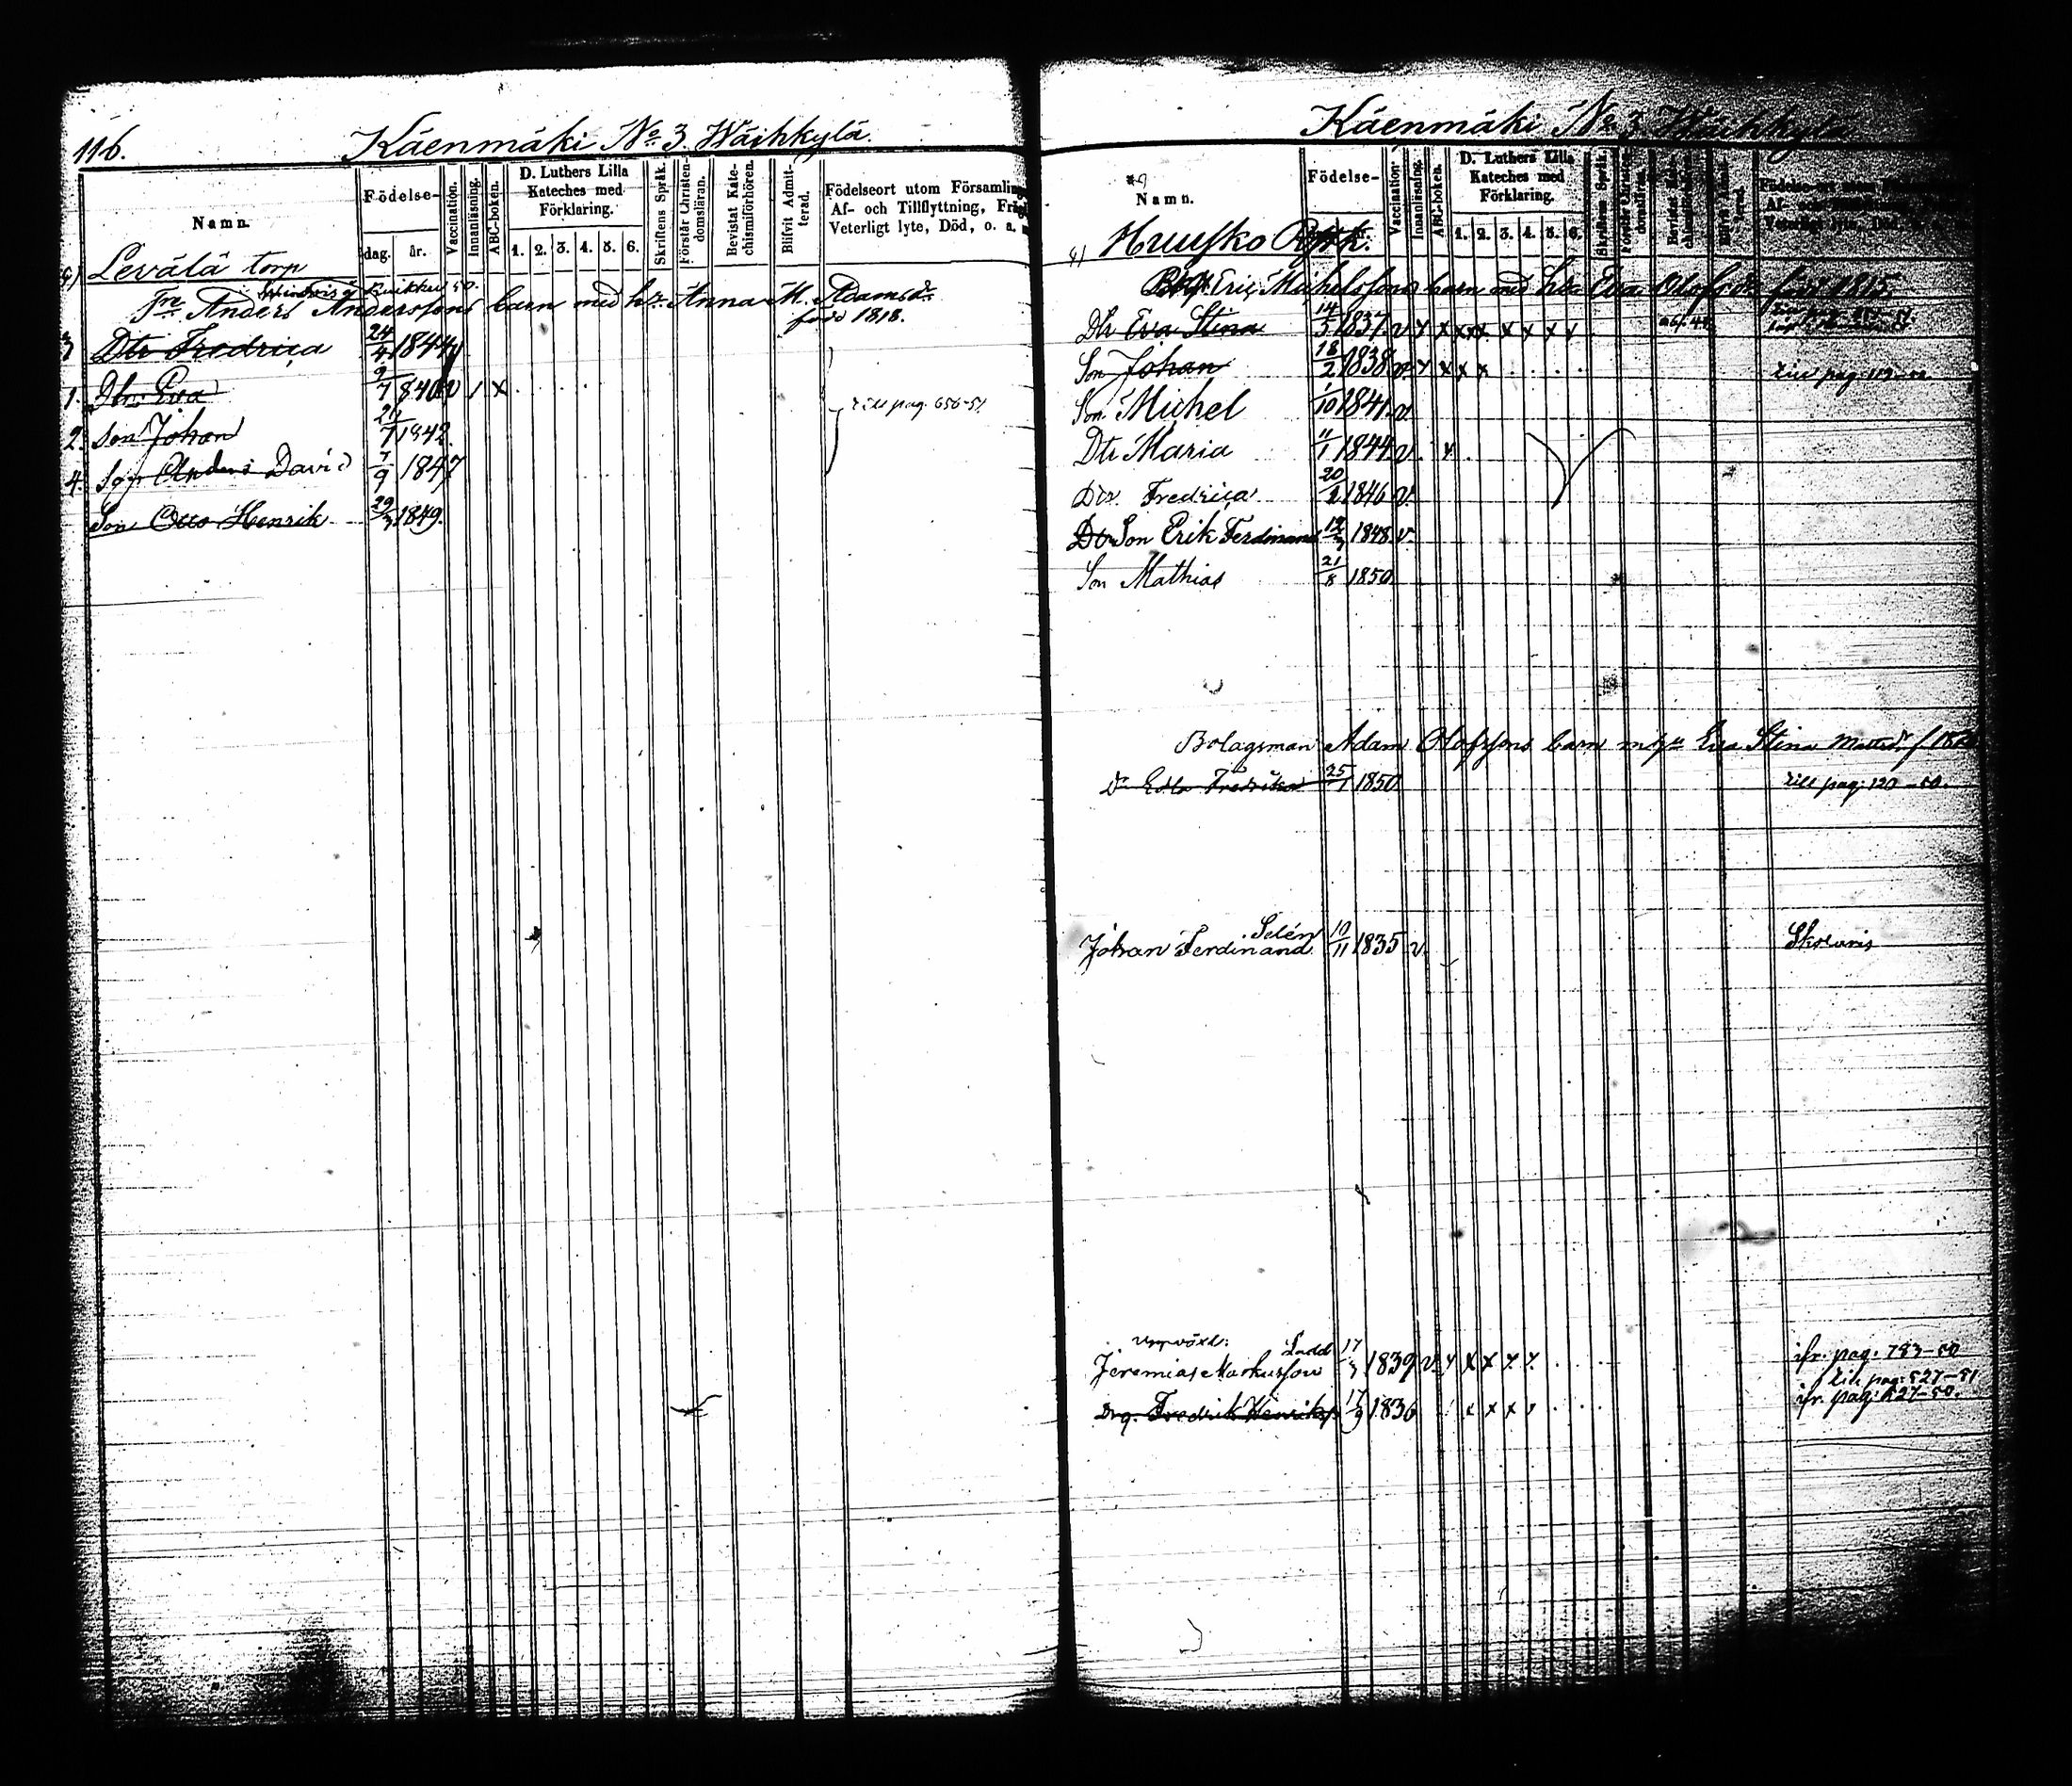 116.
Käenmäki No 3 Wäihkylä.
Namn.
Födelse-
dag. år.
Vaccination.
Innanläsning.
ABC-boken.
D. Luthers Lilla Kateches med Förklaring.
1. 2. 3. 4. 5. 6.
Skriftens Språk.
Förstår Christendomsläran.
Bevistat Katechismiförhören.
Blifvit Admitterad.
Födelseort utom Församling
Af- och Tillflyttning,
Veterligt lyte, Död, o. a.
Levälä torp
Anders Anderssons barn med h: Anna M. Adamsdr
född 1818.
3 Dtr Fredrica 24/4 1844
1. Dtr Eva 9/7 1840 v / x
till pag. 656-51
2. Son Johan 24/7 1842.
4. Son Anders David 7/9 1847
Son Otto Henrik 29/3 1849.
Käenmäki No 3 Wäihkylä
Namn.
Födelse-
Vaccination.
Innanläsning.
ABC-boken.
D. Luthers Lilla Kateches med Förklaring.
1. 2. 3. 4. 5. 6.
Skriftens Språk.
Eric Michelssons barn med h: Eva Olofsdr född 1815.
Dtr Eva Stina 14/5 1837 v x x x x x x x x x
Son Johan 18/2 1838 v. x x x x
till pag. 113
Son Michel 1/10 1841. v.
Dtr Maria 11/1 1844 v. x
Dtr Fredrica 20/2 1846 v.
Dtr Son Erik Ferdinand 1848 v.
Son Mathias 21/8 1850.
Bolagsman Adam Olofssons barn m h: Eva Stina Mattsdr f
Dr Edla Fredrika 25/1 1850
till pag. 120-50.
Selén
Johan Ferdinand 10/11 1835 v.
Skolaris
Jeremias Markusson 17 1839 v. x x x x x
ifr. pag. 783-50
till pag. 527-51
Drg. Fredrik Henriks 17/9 1836 x x x
ifr. pag. 527-50.